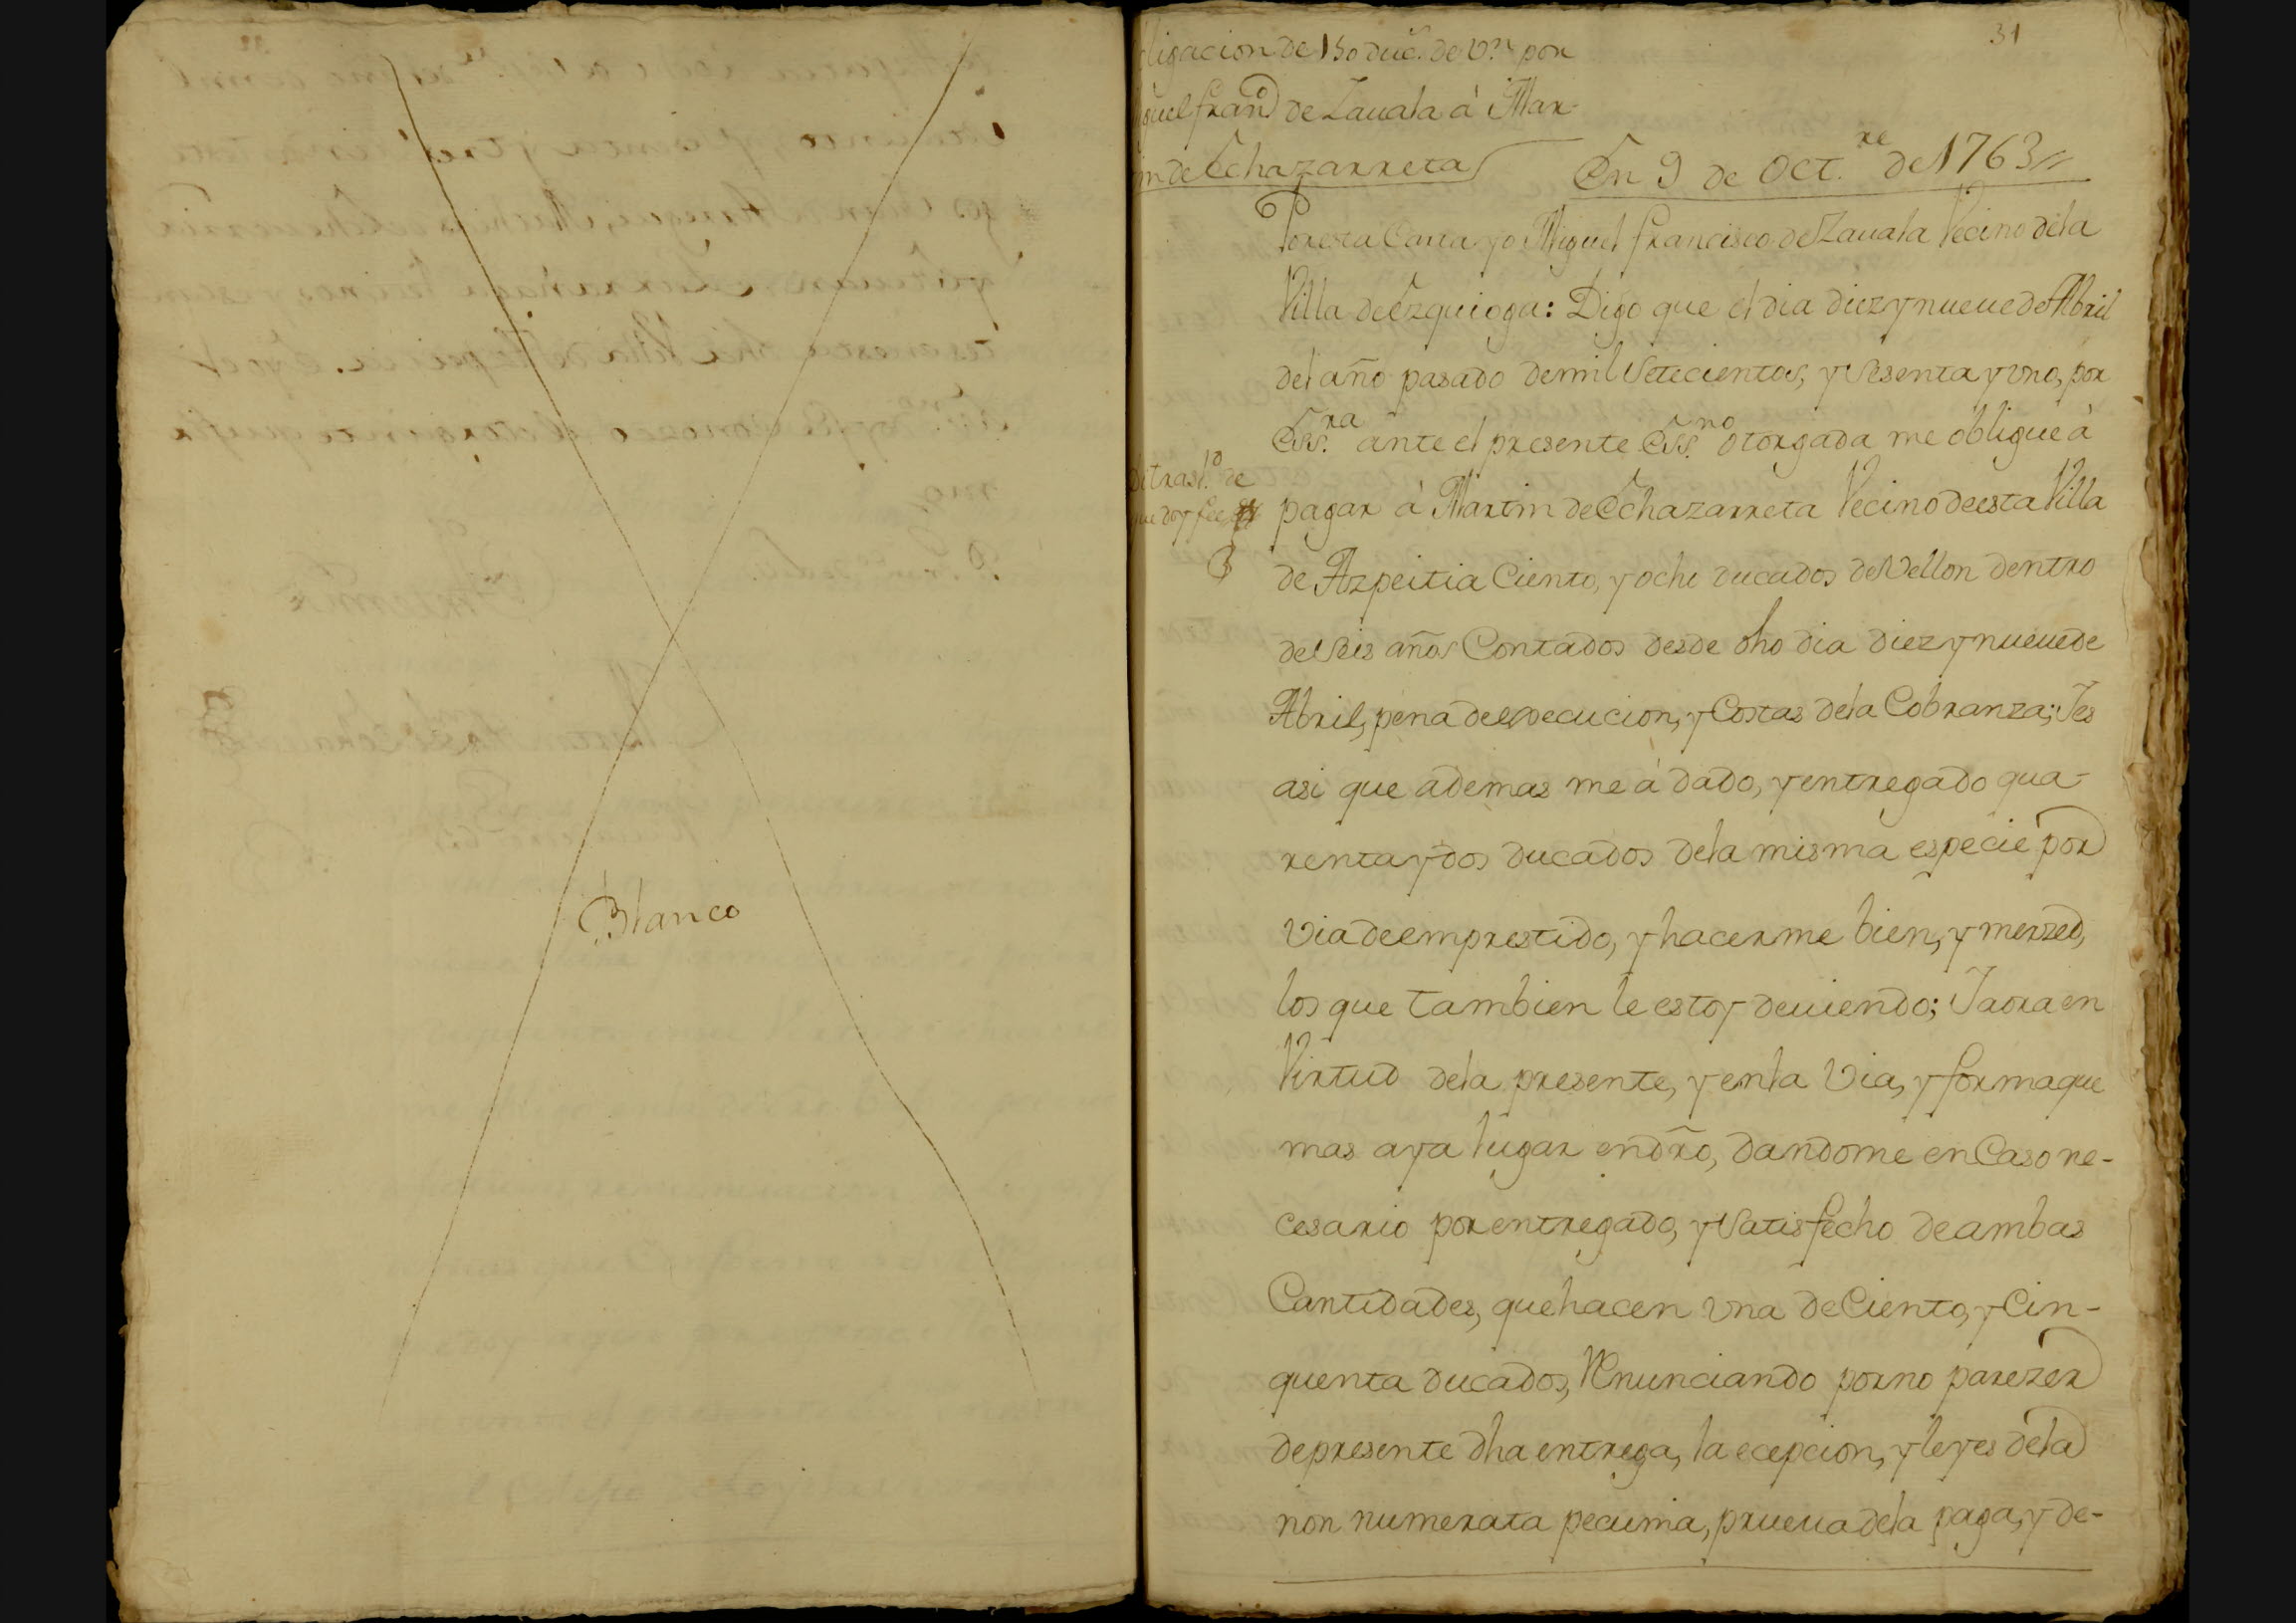 Blanco
31
ligacion de 150 duc.s de v.n por
guel fran.co de Zauala à Mar-
in de Echazarreta
En 9 de Oct.re de 1763
Por esta Carta yo Miguel francisco de Zauala Vecino dela
Villa de Ezquioga: Digo que el dia diez y nueue de Abril
del año pasado de mil Setecientos, y Sesenta y vno, por
Ess.ra ante el presente Ess.no otorgada me obligue à
di trasl.do de
que doy fee
pagar à Martin de Echazarreta Vecino de esta Villa
de Azpeitia Ciento, y ocho ducados de Vellon dentro
de Seis años Contados desde dho dia diez y nueue de
Abril, pena de execucion, y Costas dela Cobranza; Y es
asi que ademas me à dado, y entregado qua-
renta y dos ducados dela misma especie por
via de emprestido, y hacerme bien, y merzed,
los que tambien le estoy deuiendo; Y aora en
Virtud dela presente, y en la via, y forma que
mas aya lugar en dr̃o, dandome en Caso ne-
cesario por entregado, y Satisfecho de ambas
Cantidades, que hacen vna de Ciento, y Cin-
quenta ducados, Renunciando por no parezer
de presente dha entrega, la ecepcion, y leyes dela
non numerata pecunia, prueua dela paga, y de-